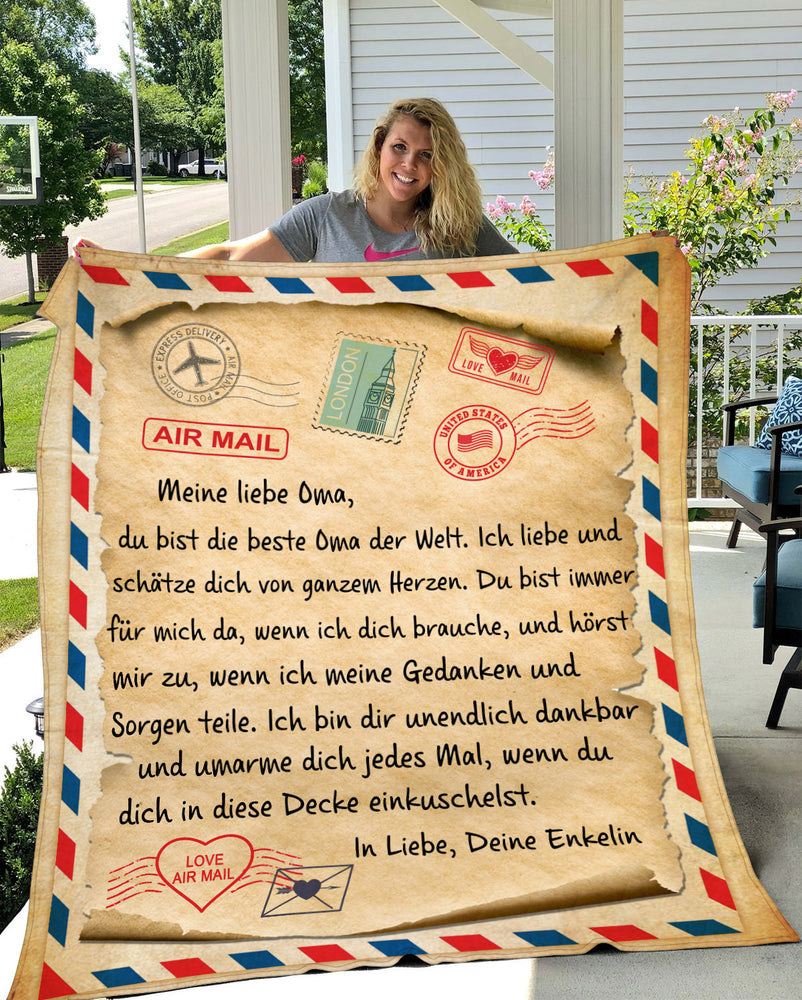 EXPRESS DELIVERY
AIR MAIL
POST OFFICE
LONDON
LOVE
MAIL
UNITED STATES
OF AMERICA
AIR MAIL
Meine liebe Oma,
du bist die beste Oma der Welt. Ich liebe und
schätze dich von ganzem Herzen. Du bist immer
für mich da, wenn ich dich brauche, und hörst
mir zu, wenn ich meine Gedanken und
Sorgen teile. Ich bin dir unendlich dankbar
und umarme dich jedes Mal, wenn du
dich in diese Decke einkuschelst.
In Liebe, Deine Enkelin
LOVE
AIR MAIL